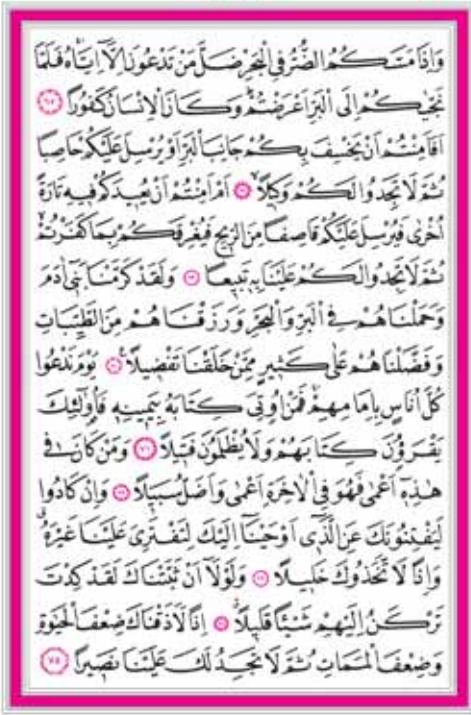 وَاِذَا مَسَّكُمُ الضُّرُّ فِي الْبَحْرِ ضَلَّ مَنْ تَدْعُونَ اِلَّٓا اِيَّاهُۚ فَلَمَّا
نَجّٰيكُمْ اِلَى الْبَرِّ اَعْرَضْتُمْۜ وَكَانَ الْاِنْسَانُ كَفُورًا ﴿٦٧﴾
اَفَاَمِنْتُمْ اَنْ يَخْسِفَ بِكُمْ جَانِبَ الْبَرِّ اَوْ يُرْسِلَ عَلَيْكُمْ حَاصِبًا
ثُمَّ لَا تَجِدُوا لَكُمْ وَكِيلًاۙ ﴿٦٨﴾ اَمْ اَمِنْتُمْ اَنْ يُعِيدَكُمْ فِيهِ تَارَةً
اُخْرٰى فَيُرْسِلَ عَلَيْكُمْ قَاصِفًا مِنَ الرِّيحِ فَيُغْرِقَكُمْ بِمَا كَفَرْتُمْۙ
ثُمَّ لَا تَجِدُوا لَكُمْ عَلَيْنَا بِهِ تَبِيعًا ﴿٦٩﴾ وَلَقَدْ كَرَّمْنَا بَنِٓي اٰدَمَ
وَحَمَلْنَاهُمْ فِي الْبَرِّ وَالْبَحْرِ وَرَزَقْنَاهُمْ مِنَ الطَّيِّبَاتِ
وَفَضَّلْنَاهُمْ عَلٰى كَثِيرٍ مِمَّنْ خَلَقْنَا تَفْضِيلًا۟ ﴿٧٠﴾ يَوْمَ نَدْعُوا
كُلَّ اُنَاسٍ بِاِمَامِهِمْۚ فَمَنْ اُو۫تِيَ كِتَابَهُ بِيَمِينِهِ فَاُو۬لٰٓئِكَ
يَقْرَؤُ۫نَ كِتَابَهُمْ وَلَا يُظْلَمُونَ فَتِيلًا ﴿٧١﴾ وَمَنْ كَانَ فِي
هٰذِهِٓ اَعْمٰى فَهُوَ فِي الْاٰخِرَةِ اَعْمٰى وَاَضَلُّ سَبِيلًا ﴿٧٢﴾ وَاِنْ كَادُوا
لَيَفْتِنُونَكَ عَنِ الَّذِٓي اَوْحَيْنَٓا اِلَيْكَ لِتَفْتَرِيَ عَلَيْنَا غَيْرَهُۗ
وَاِذًا لَاتَّخَذُوكَ خَلِيلًا ﴿٧٣﴾ وَلَوْلَٓا اَنْ ثَبَّتْنَاكَ لَقَدْ كِدْتَ
تَرْكَنُ اِلَيْهِمْ شَيْـًٔا قَلِيلًاۗ ﴿٧٤﴾ اِذًا لَاَذَقْنَاكَ ضِعْفَ الْحَيٰوةِ
وَضِعْفَ الْمَمَاتِ ثُمَّ لَا تَجِدُ لَكَ عَلَيْنَا نَصِيرًا ﴿٧٥﴾